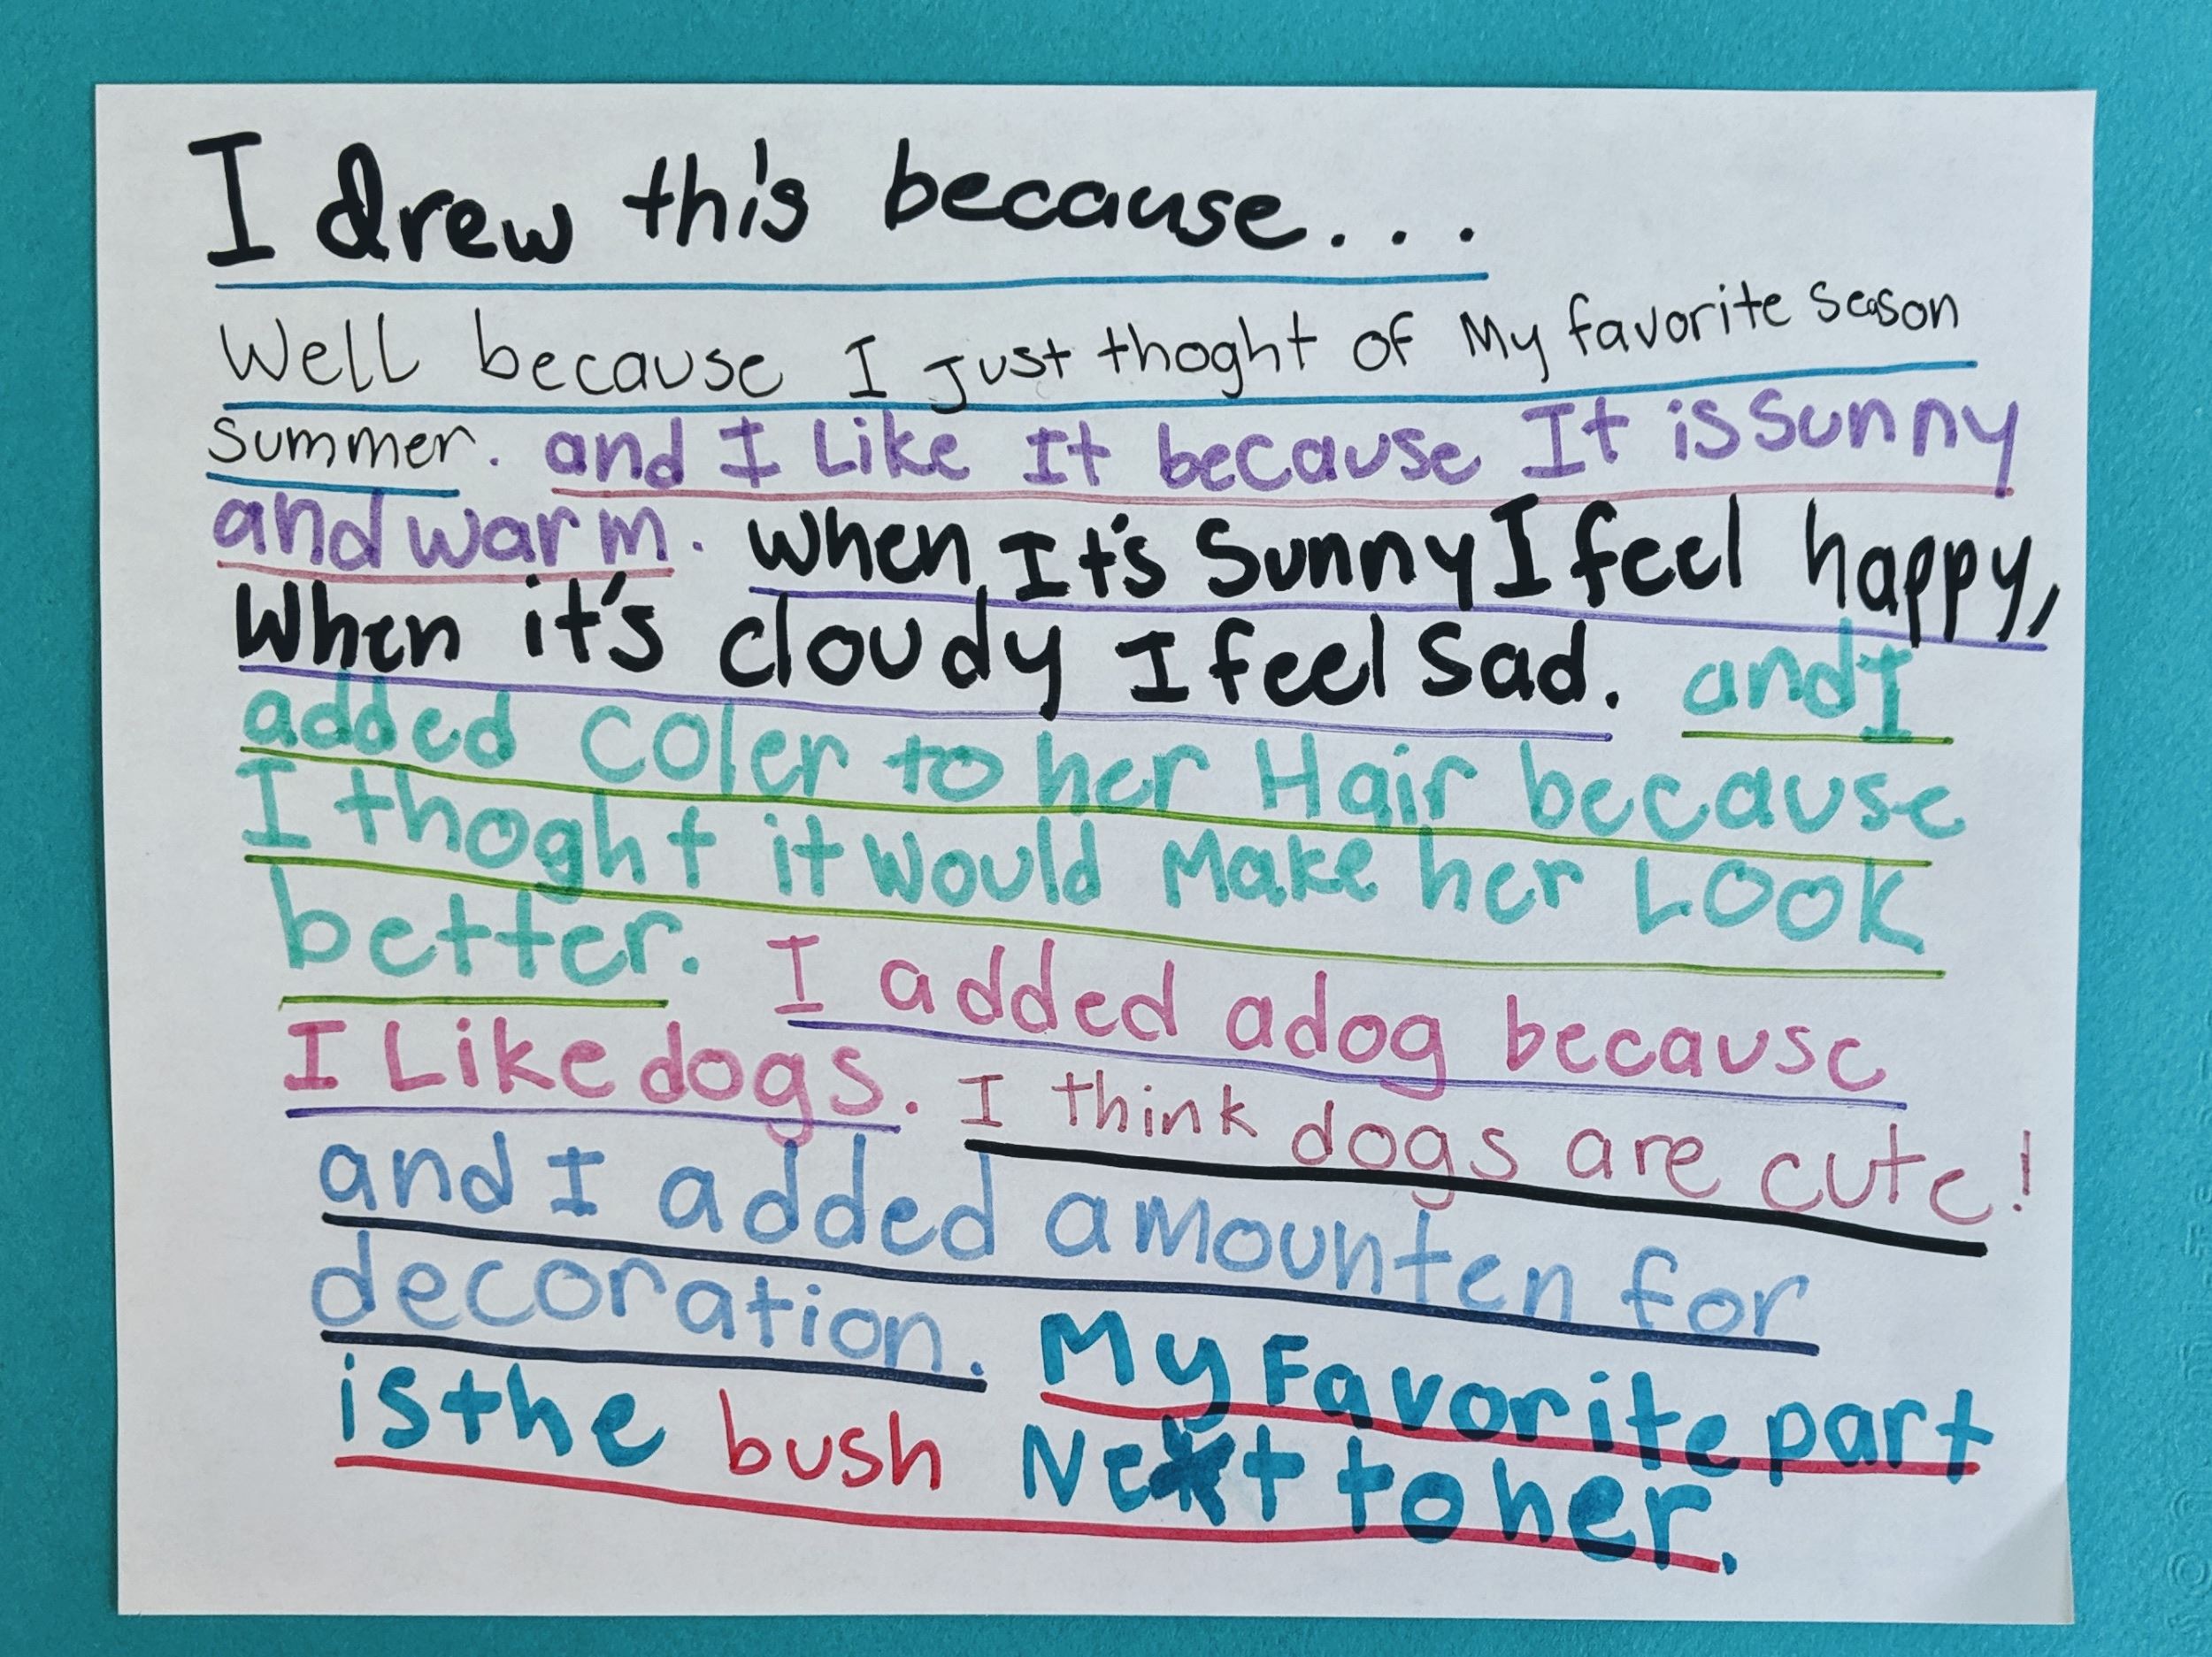 I drew this because...
Well because I just thoght of My favorite season
Summer. and I Like It because It is Sunny
and warm. When It's Sunny I feel happy,
When it's cloudy I feel Sad. and I
added Coler to her Hair because
I thoght it Would Make her LOOK
better. I added a dog because
I Like dogs. I think dogs are cute!
and I added a mounten for
decoration. My Favorite part
is the bush Next to her.